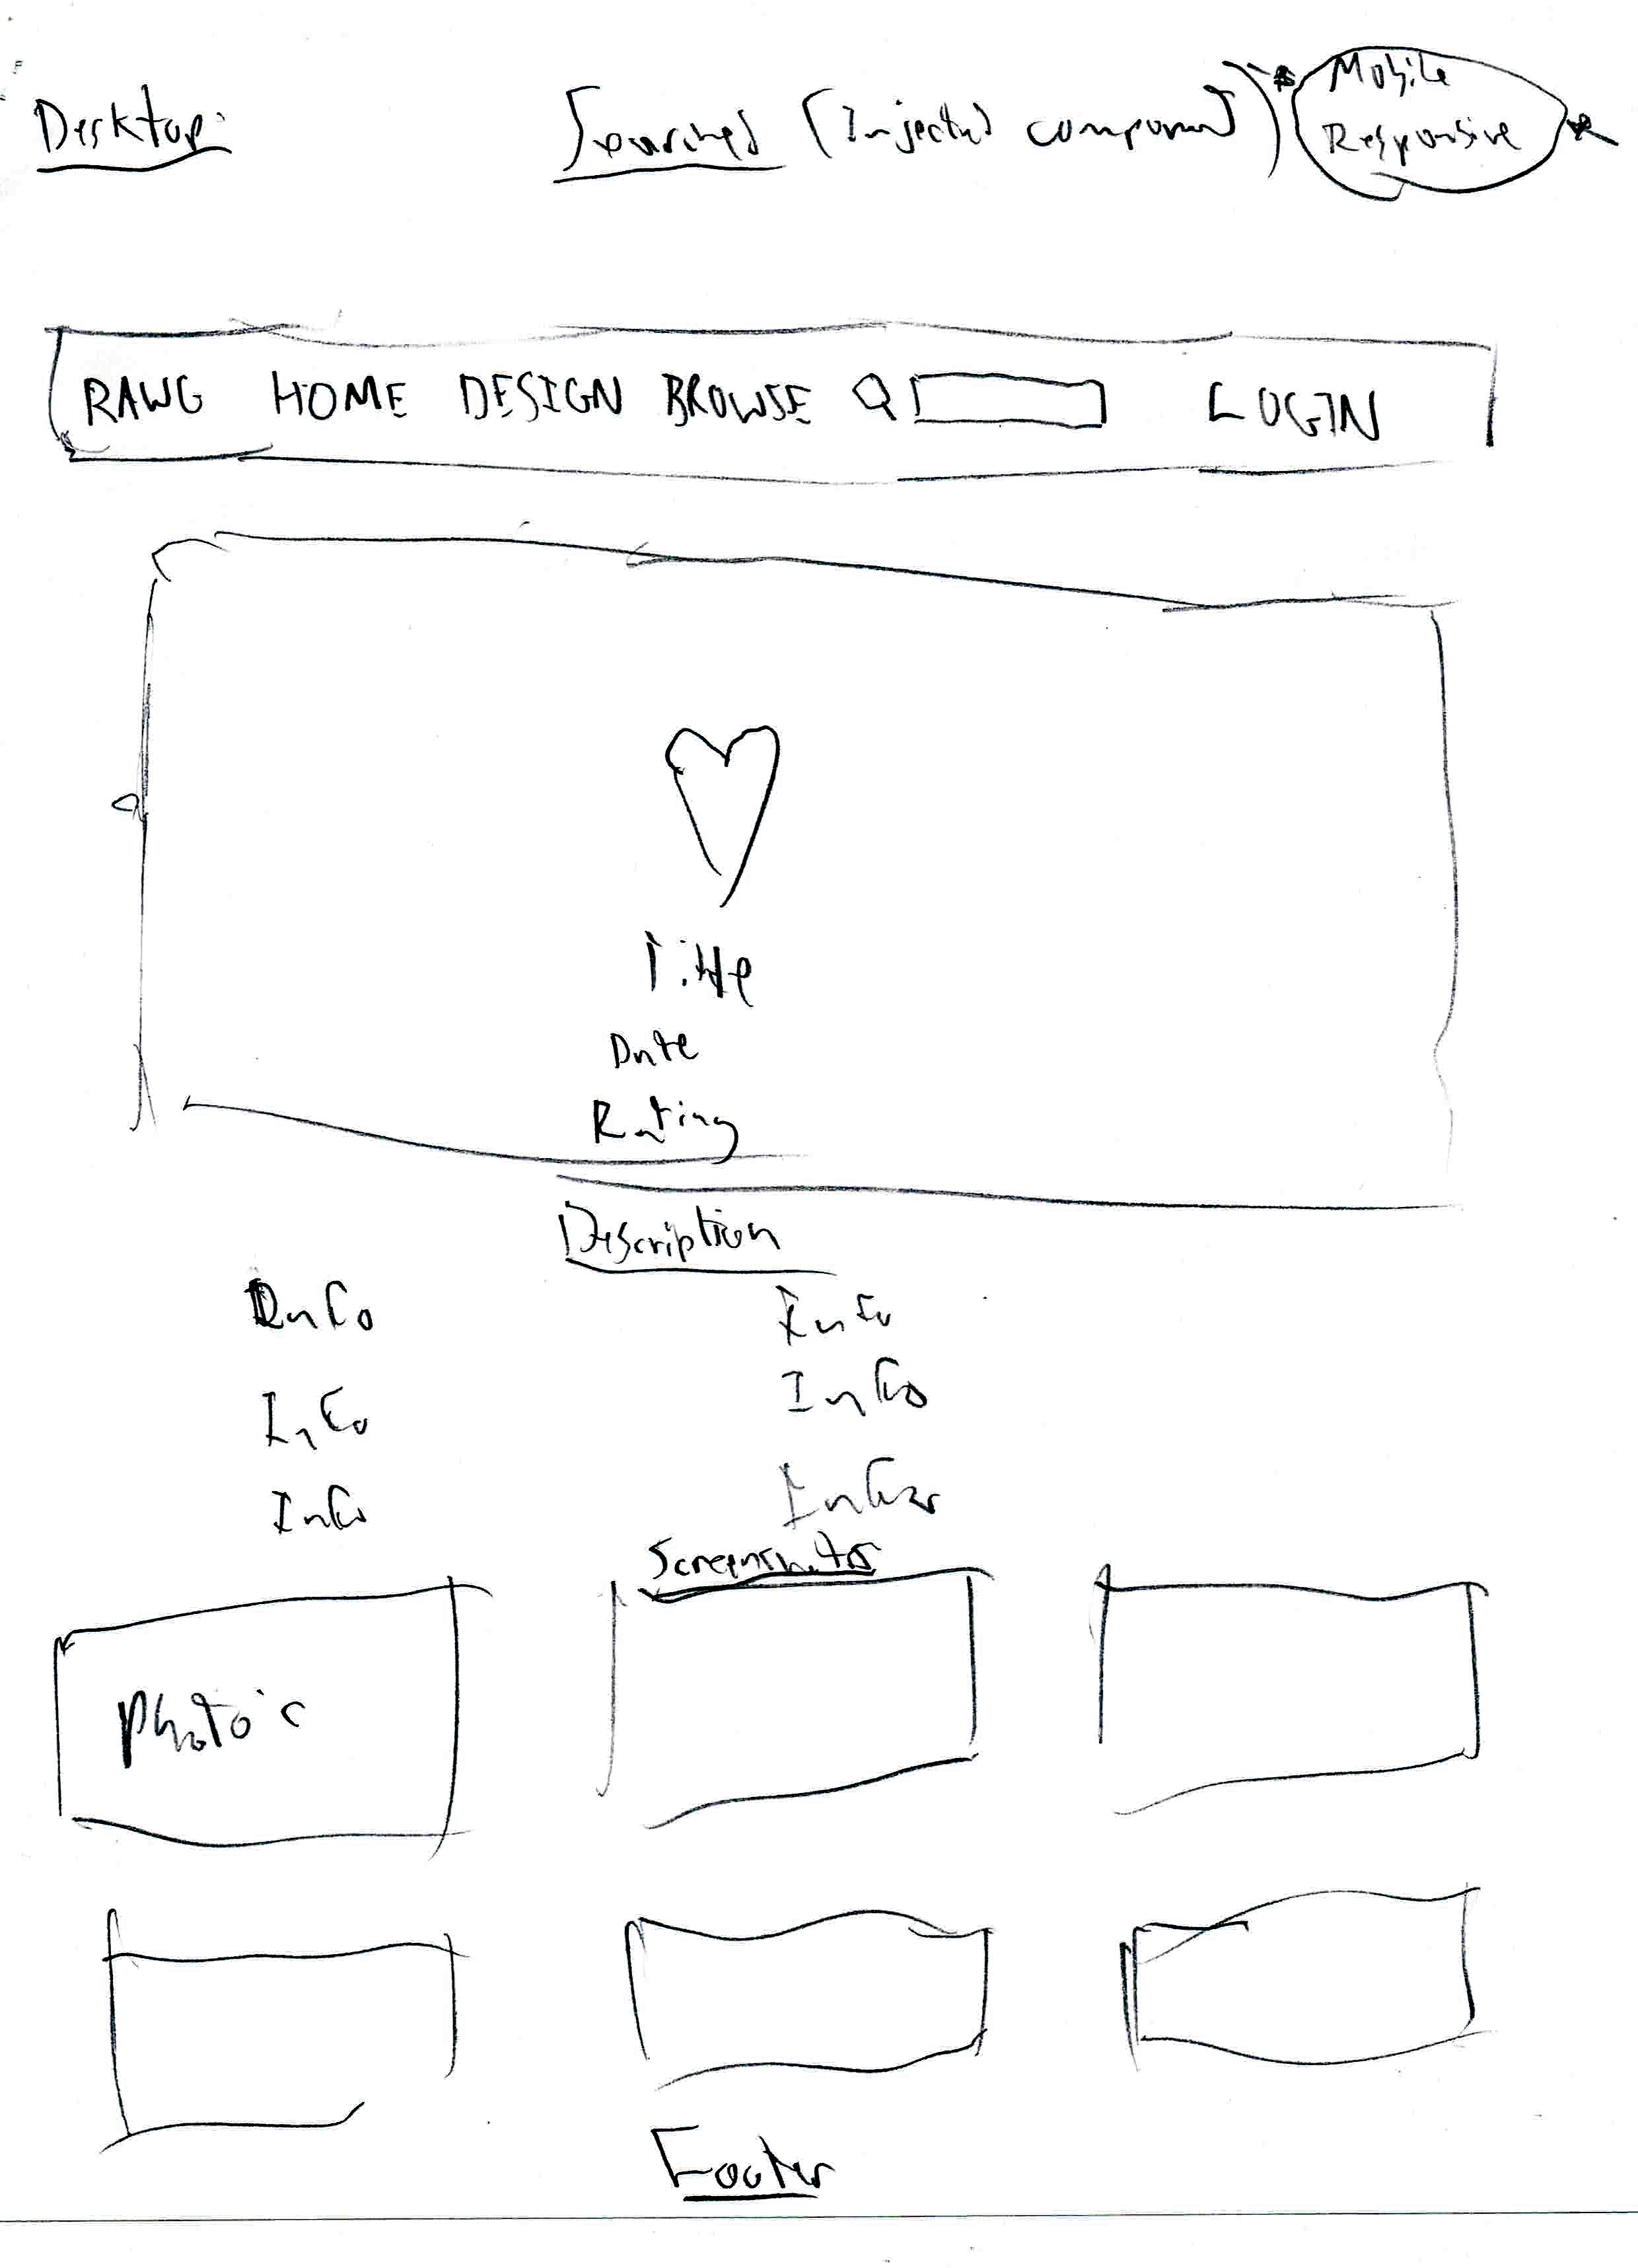 Desktop:
Searched (Injected component)
* Mobile
Responsive *
RAWG HOME DESIGN BROWSE LOGIN
Title
Date
Rating
Description
Info Info
Info Info
Info Info
Screenshots
Photo's
Footer